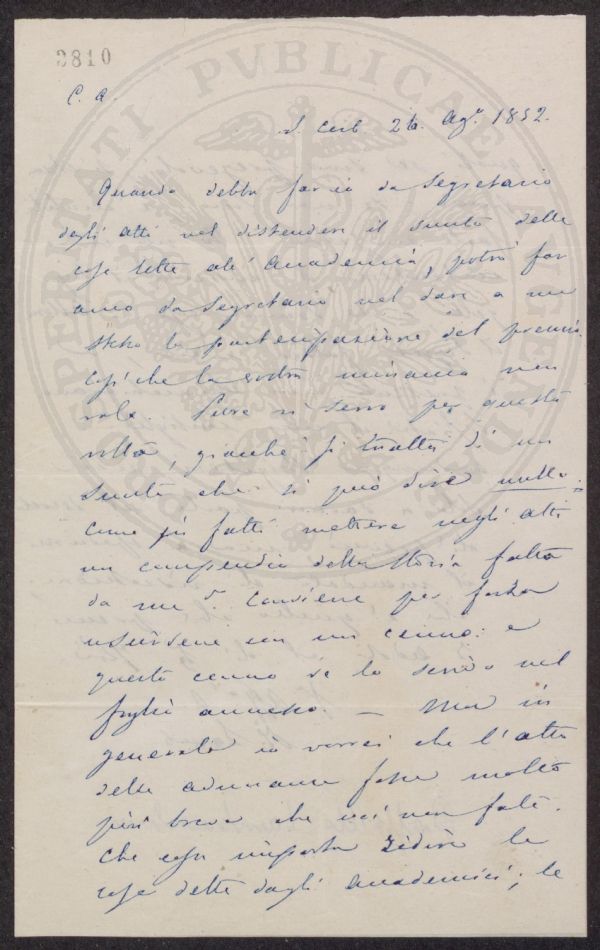 3810
C. A.
S. Cerb. 26. Ag.º 1852.
Quando debba far io da Segretario
degli atti nel distendere il sunto delle
cose lette all' Accademia, potrò far
anco da Segretario nel dare a me
stesso la partecipazione del premio.
Così che la vostra minaccia non
vale. Pure vi servo per questa
volta, giacché si tratta di un
sunto che si può dire nullo.
Come si fatti mettere negli atti
un compendio della storia fatta
da me? Conviene per forza
uscirsene con un cenno: e
questo cenno ve lo scrivo nel
foglio annesso. — Ma in
generale io vorrei che l'atto
delle adunanze fosse molto
più breve che voi non fate.
Che cosa importa ridire le
cose dette dagli Accademici; le
PERMATI PVBLICAE